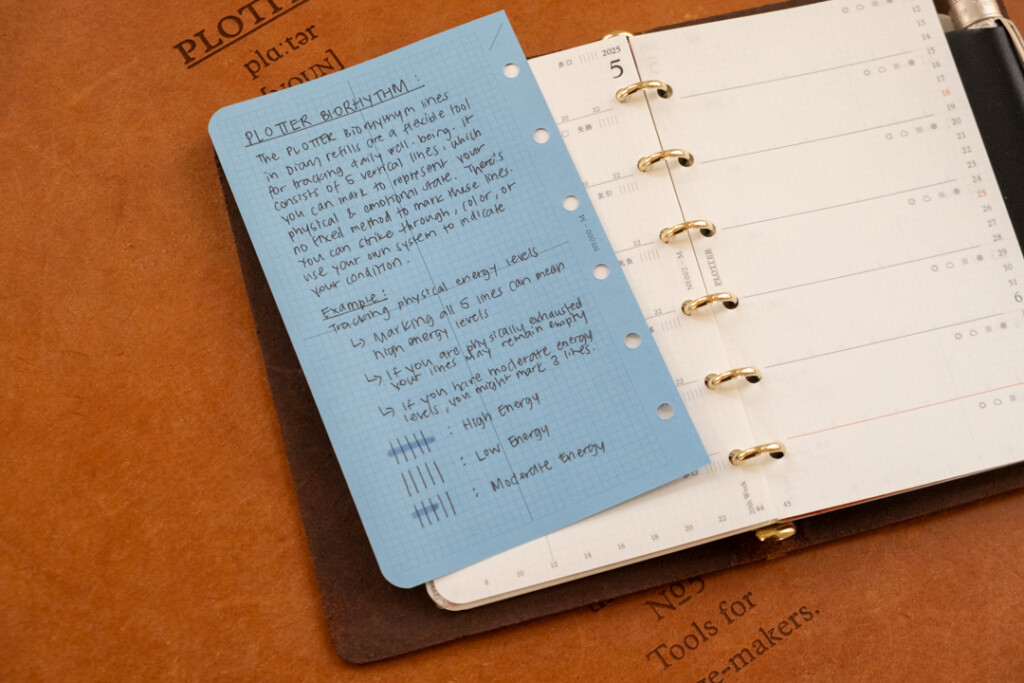 PLOTTER
plɑːtər
[NOUN]
PLOTTER BIORHYTHM :
The PLOTTER Biorhythym lines
in Diary refills are a flexible tool
for tracking daily well-being. It
consists of 5 vertical lines, which
you can mark to represent your
physical & emotional state. There's
no fixed method to mark these lines.
You can strike through, color, or
use your own system to indicate
your condition.
Example:
Tracking physical energy levels
↳ Marking all 5 lines can mean
high energy levels
↳ If you are physically exhausted
your lines may remain empty
↳ If you have moderate energy
levels, you might mark 3 lines.
: High Energy
: Low Energy
: Moderate Energy
2025
5
赤口
20 22
先勝
22
友引
22
先負
22
22
22
8 10 12 14 16 18 20 22
44 45
PLOTTER
12
13
14
15
16
17
18
19
20
21
22
23
24
25
26
27
28
29
30
31
6
Nº5
Tools for
ge-makers.